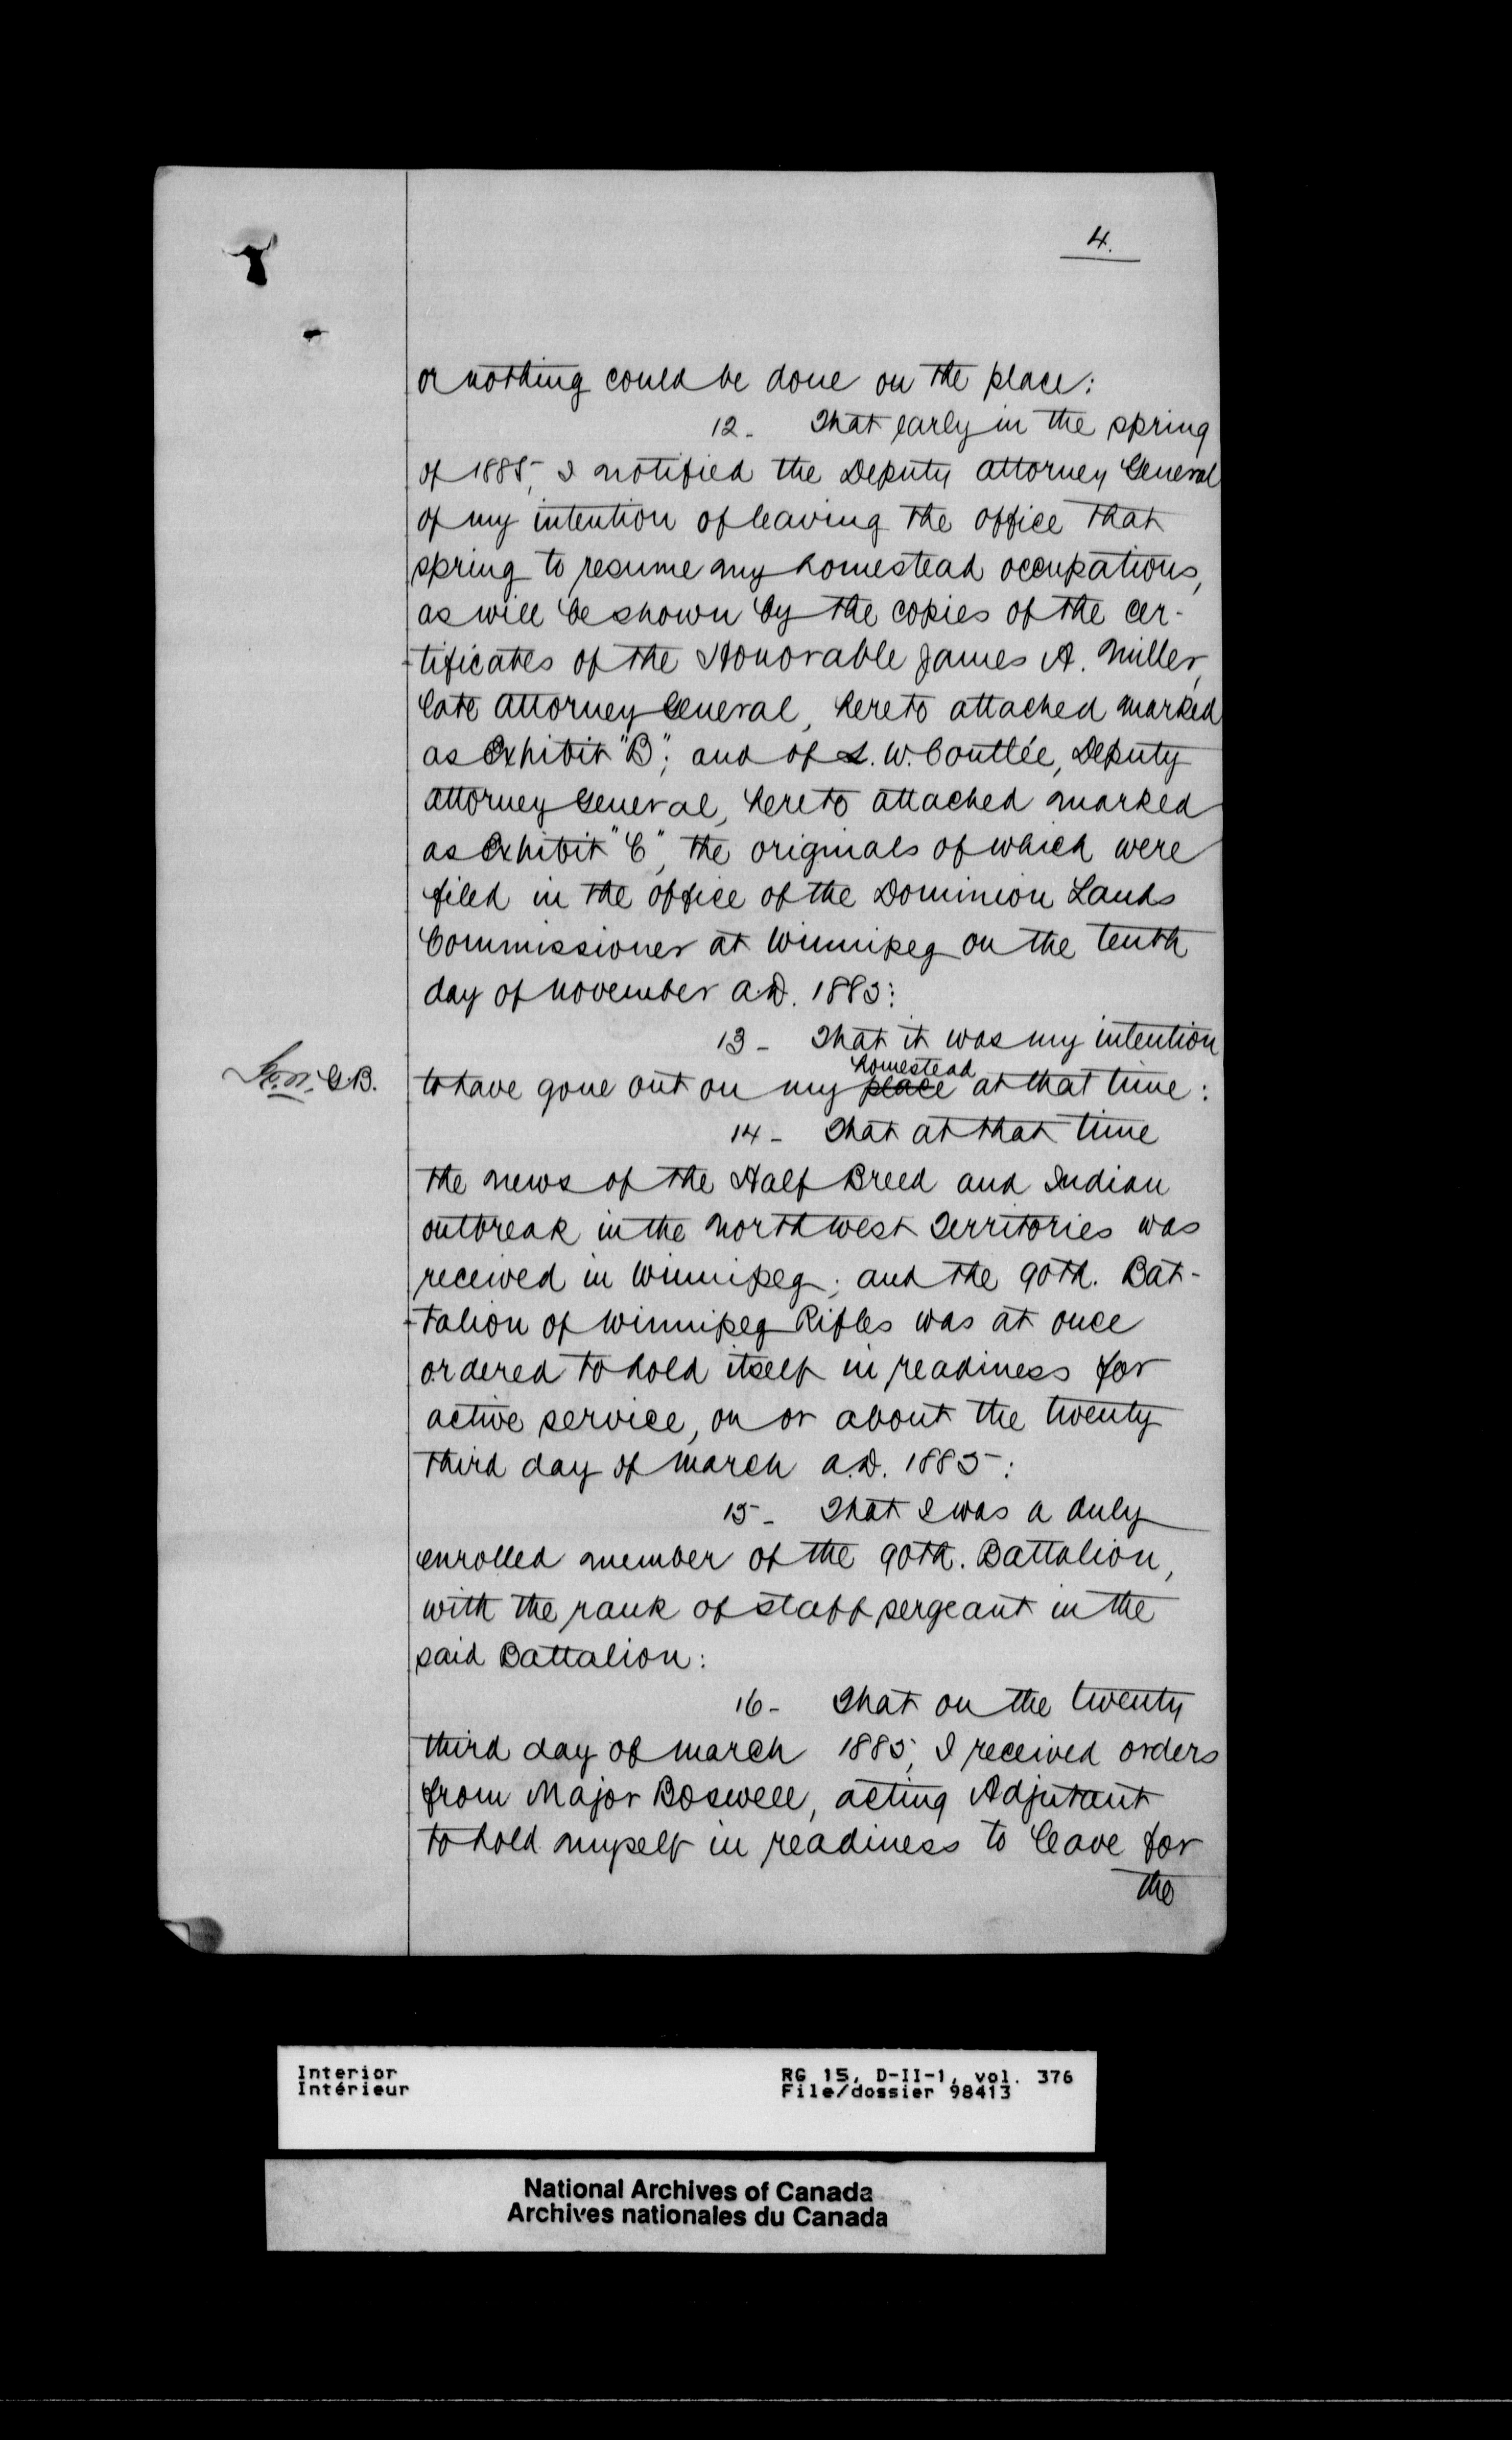 4.
or nothing could be done on the place:
12 - That early in the spring
of 1885, I notified the Deputy Attorney General
of my intention of leaving the office that
spring to resume my homestead occupations,
as will be shown by the copies of the cer-
-tificates of the Honorable James A. Miller,
late Attorney General, hereto attached marked
as Exhibit "B"; and of L. W. Coutlée, Deputy
Attorney General, hereto attached marked
as Exhibit "C", the originals of which were
filed in the office of the Dominion Lands
Commissioner at Winnipeg on the tenth
day of November A.D. 1885:
13 - That it was my intention
homestead
G.B. to have gone out on my place at that time:
14 - That at that time
the news of the Half Breed and Indian
outbreak in the North West Territories was
received in Winnipeg; and the 90th. Bat-
-talion of Winnipeg Rifles was at once
ordered to hold itself in readiness for
active service, on or about the twenty
third day of March A.D. 1885:
15 - That I was a duly
enrolled member of the 90th. Battalion,
with the rank of staff sergeant in the
said Battalion:
16 - That on the twenty
third day of March 1885, I received orders
from Major Boswell, acting Adjutant
to hold myself in readiness to leave for
the
Interior
Intérieur
RG 15, D-II-1, vol. 376
File/dossier 98413
National Archives of Canada
Archives nationales du Canada